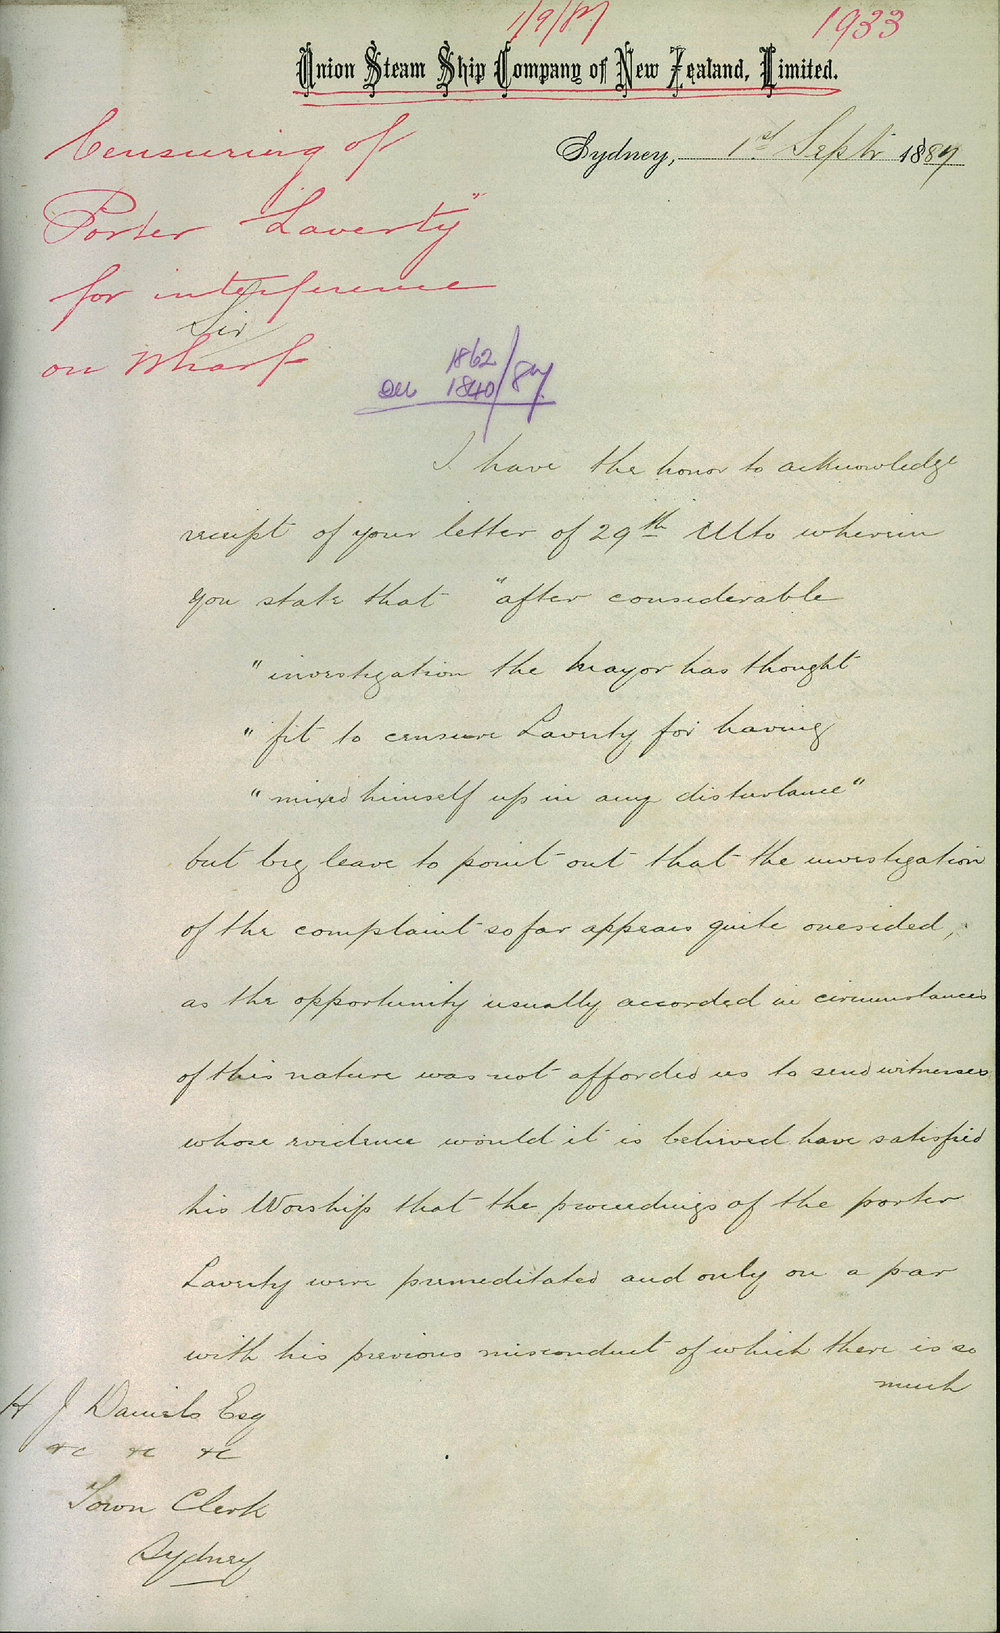 1/9/87
1933
Union Steam Ship Company of New Zealand, Limited.
Sydney, 1st Septr 1887
Censuring of
Porter "Laverty"
for interference
on Wharf
Sir
1862
1840/87
I have the honor to acknowledge
receipt of your letter of 29th Ulto wherein
you state that "after considerable
"investigation the Mayor has thought
"fit to censure Laverty for having
"mixed himself up in any disturbance"
but beg leave to point out that the investigation
of the complaint so far appears quite onesided,
as the opportunity usually accorded in circumstances
of this nature was not afforded us to send witnesses
whose evidence would it is believed have satisfied
his Worship that the proceedings of the porter
Laverty were premeditated and only on a par
with his previous misconduct of which there is so
much
H J Daniels Esq
&c &c &c
Town Clerk
Sydney